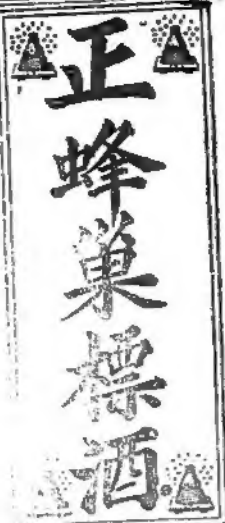 正蜂巢標酒